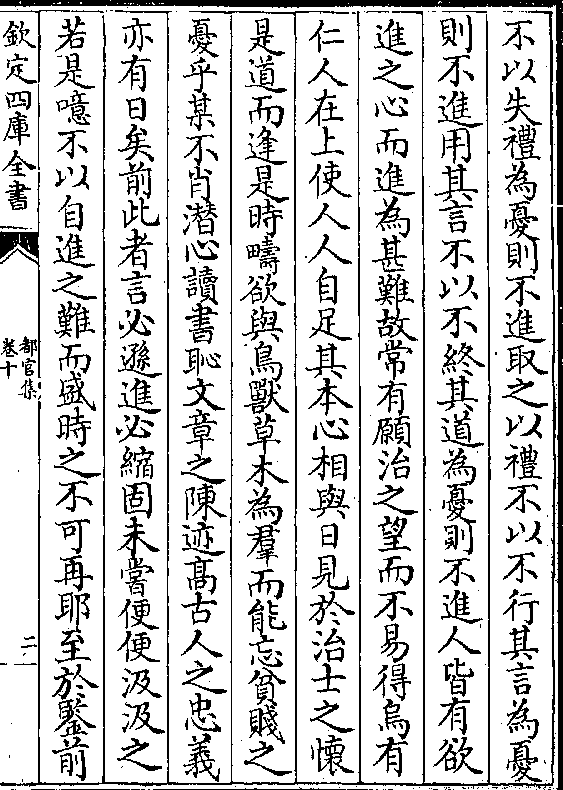 不以失禮為憂則不進取之以禮不以不行其言為憂
則不進用其言不以不終其道為憂則不進人皆有欲
進之心而進為甚難故常有願治之望而不易得烏有
仁人在上使人人自足其本心相與日見於治士之懷
是道而逢是時疇欲與鳥獸草木為羣而能忘貧賤之
憂乎某不肖潛心讀書恥文章之陳迹髙古人之忠義
亦有日矣前此者言必遜進必縮固未嘗便便汲汲之
若是噫不以自進之難而盛時之不可再耶至於鑒前
欽定四庫全書
都官集
卷十
二